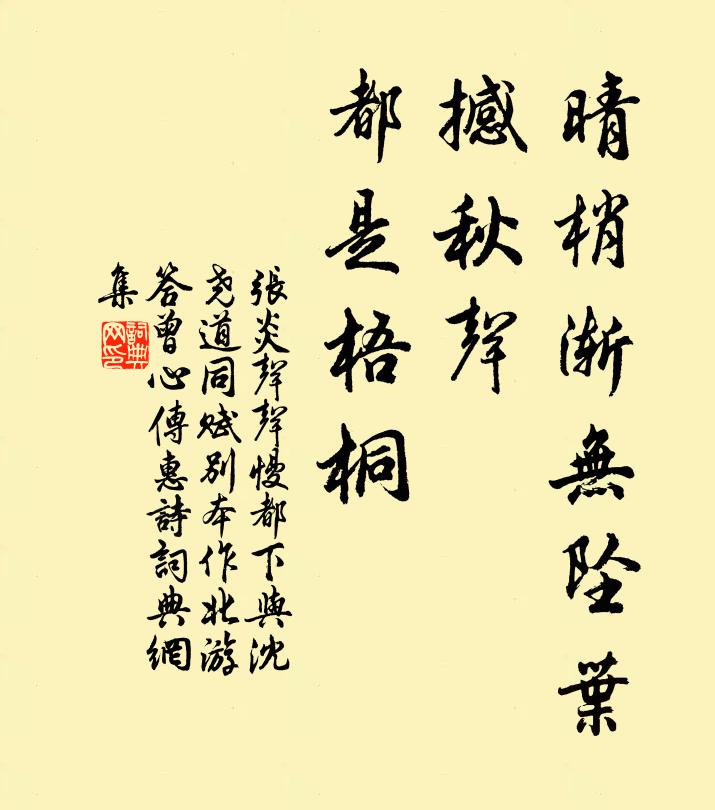 晴梢漸無墜葉
撼秋聲
都是梧桐
張炎聲聲慢都下與沈
堯道同賦別本作北游
答曾心傳惠詩詞典網
集
詞典網印